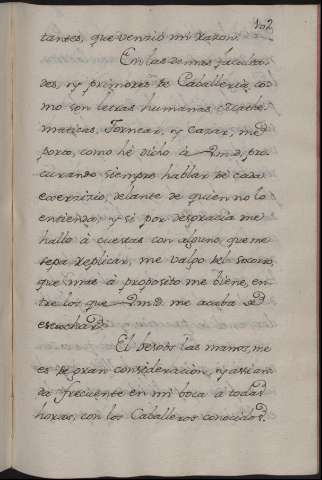 102
tantes, que venzió mi razon.
En las demas faculta-
des, y primores de Caballeria, co-
mo son letras humanas, Mathe-
maticas, Tornear, y Cazar, me
porto, como hé dicho à Vmd, pro-
curando siempre hablar de cada
exerzizio, delante de quien no lo
entienda; y si por desgracia me
hallo à cuestas con alguno, que me
sepa replicar, me valgo del socorro,
que mas à proposito me biene, en-
tre los que Vmd me acaba de
escuchar.
El besoos las manos, me
es de gran consideracion, y assi an-
da frecuente en mi boca à todas
horas, con los Caballeros conocidos.